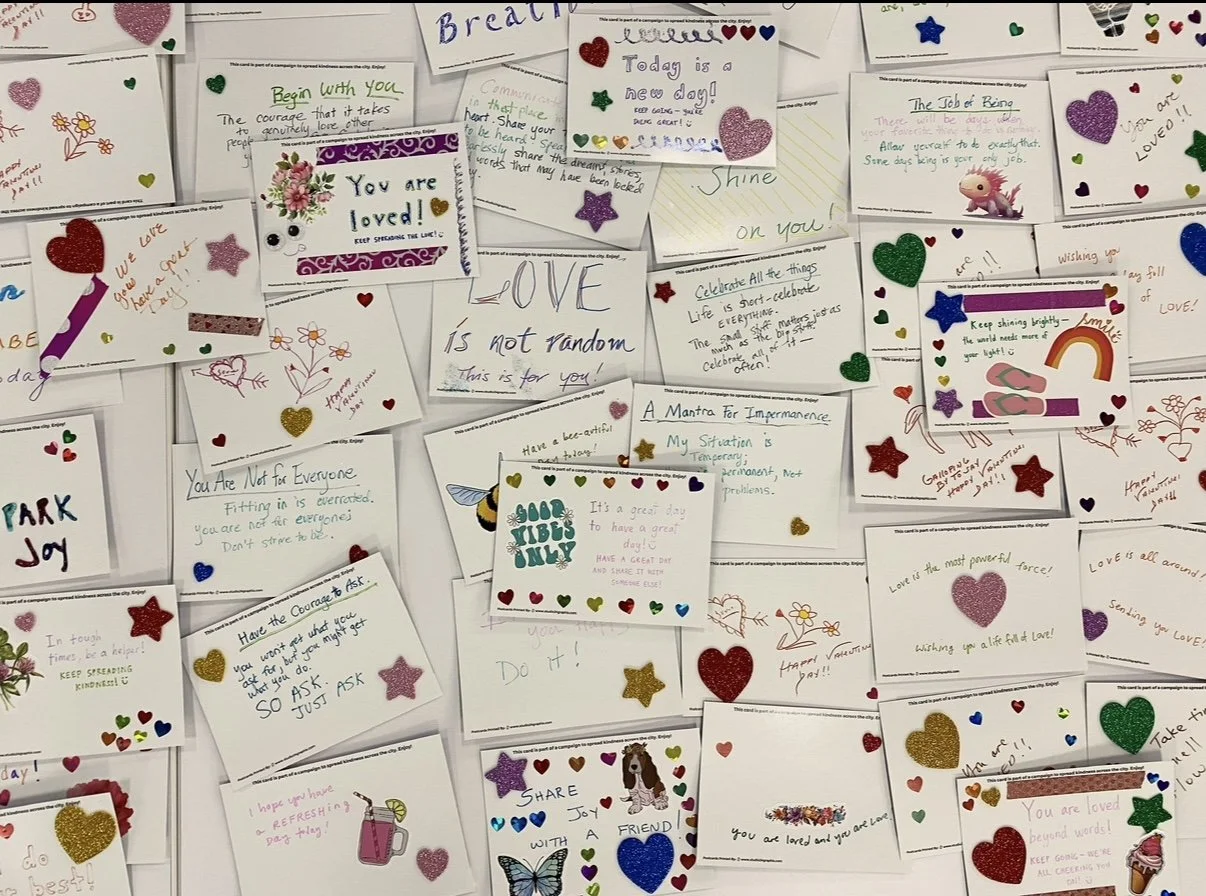 This card is part of a campaign to spread kindness across the city. Enjoy!
Today is a
new day!
KEEP GOING - YOU'RE
DOING GREAT!
Begin With You
The courage that it takes
to genuinely love other
Communicate
in that place in
heart. Share your
to be heard! Speak
fearlessly share the dreams, stories,
words that may have been locked
Shine
on you!
The Job of Being
There will be days when
your favorite thing to do is nothing.
Allow yourself to do exactly that.
Some days being is your only job.
You are
LOVED!!
This card is part of a campaign to spread kindness across the city. Enjoy!
You are
loved!
KEEP SPREADING THE LOVE!
HAPPY
VALENTINES
DAY!!
We Love
you
have a great
Day!!
LOVE
is not random
This is for you!
Celebrate All the things
Life is short-celebrate
EVERYTHING.
The small stuff matters just as
much as the big stuff!
Celebrate all of it—
often!
are
Wishing you
day full
of
LOVE!
Keep shining brightly—
the world needs more of
your light!
smile
HAPPY
VALENTINES
DAY
You Are Not for Everyone
Fitting in is overrated.
you are not for everyone;
Don't strive to be.
Have a bee-autiful
today!
A Mantra For Impermanence
My Situation is
Temporary;
permanent, not
problems.
GALLOPING
BY TO SAY
HAPPY VALENTINES
DAY!!
HAPPY VALENTINES
DAY!!
PARK
Joy
This card is part of a campaign to spread kindness across the city. Enjoy!
GOOD
VIBES
ONLY
It's a great day
to have a great
day!
HAVE A GREAT DAY
AND SHARE IT WITH
SOMEONE ELSE!
Postcards Printed By: www.studiographix.com
Love is the most powerful force!
Wishing you a life full of Love!
Love is all around!
Sending you LOVE!
In tough
times, be a helper!
KEEP SPREADING
KINDNESS!
Have the Courage to Ask.
You won't get what you
ask for, but you might get
what you do.
SO ASK.
JUST ASK
you happy
Do it!
HAPPY VALENTINES
DAY!!
day!
This card is part of a campaign to spread kindness across the city. Enjoy!
I hope you have
a REFRESHING
Day today!
This card is part of a campaign to spread kindness across the city. Enjoy!
SHARE
Joy
WITH A FRIEND!
you are loved and you are Love
You are
Take
do
best!
You are loved
beyond words!
KEEP GOING - WE'RE
ALL CHEERING YOU
ON!